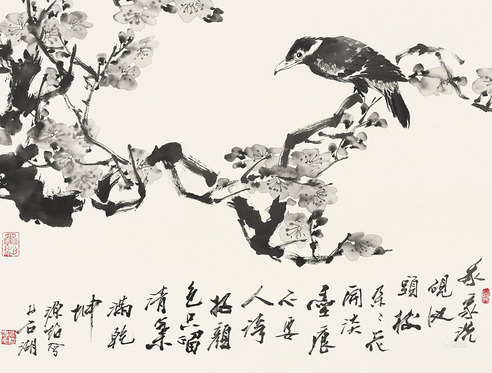 我家洗
硯池
頭樹
朵〻花
開淡
墨痕
不要
人誇
好顏
色只留
清氣
滿乾
坤
石湖